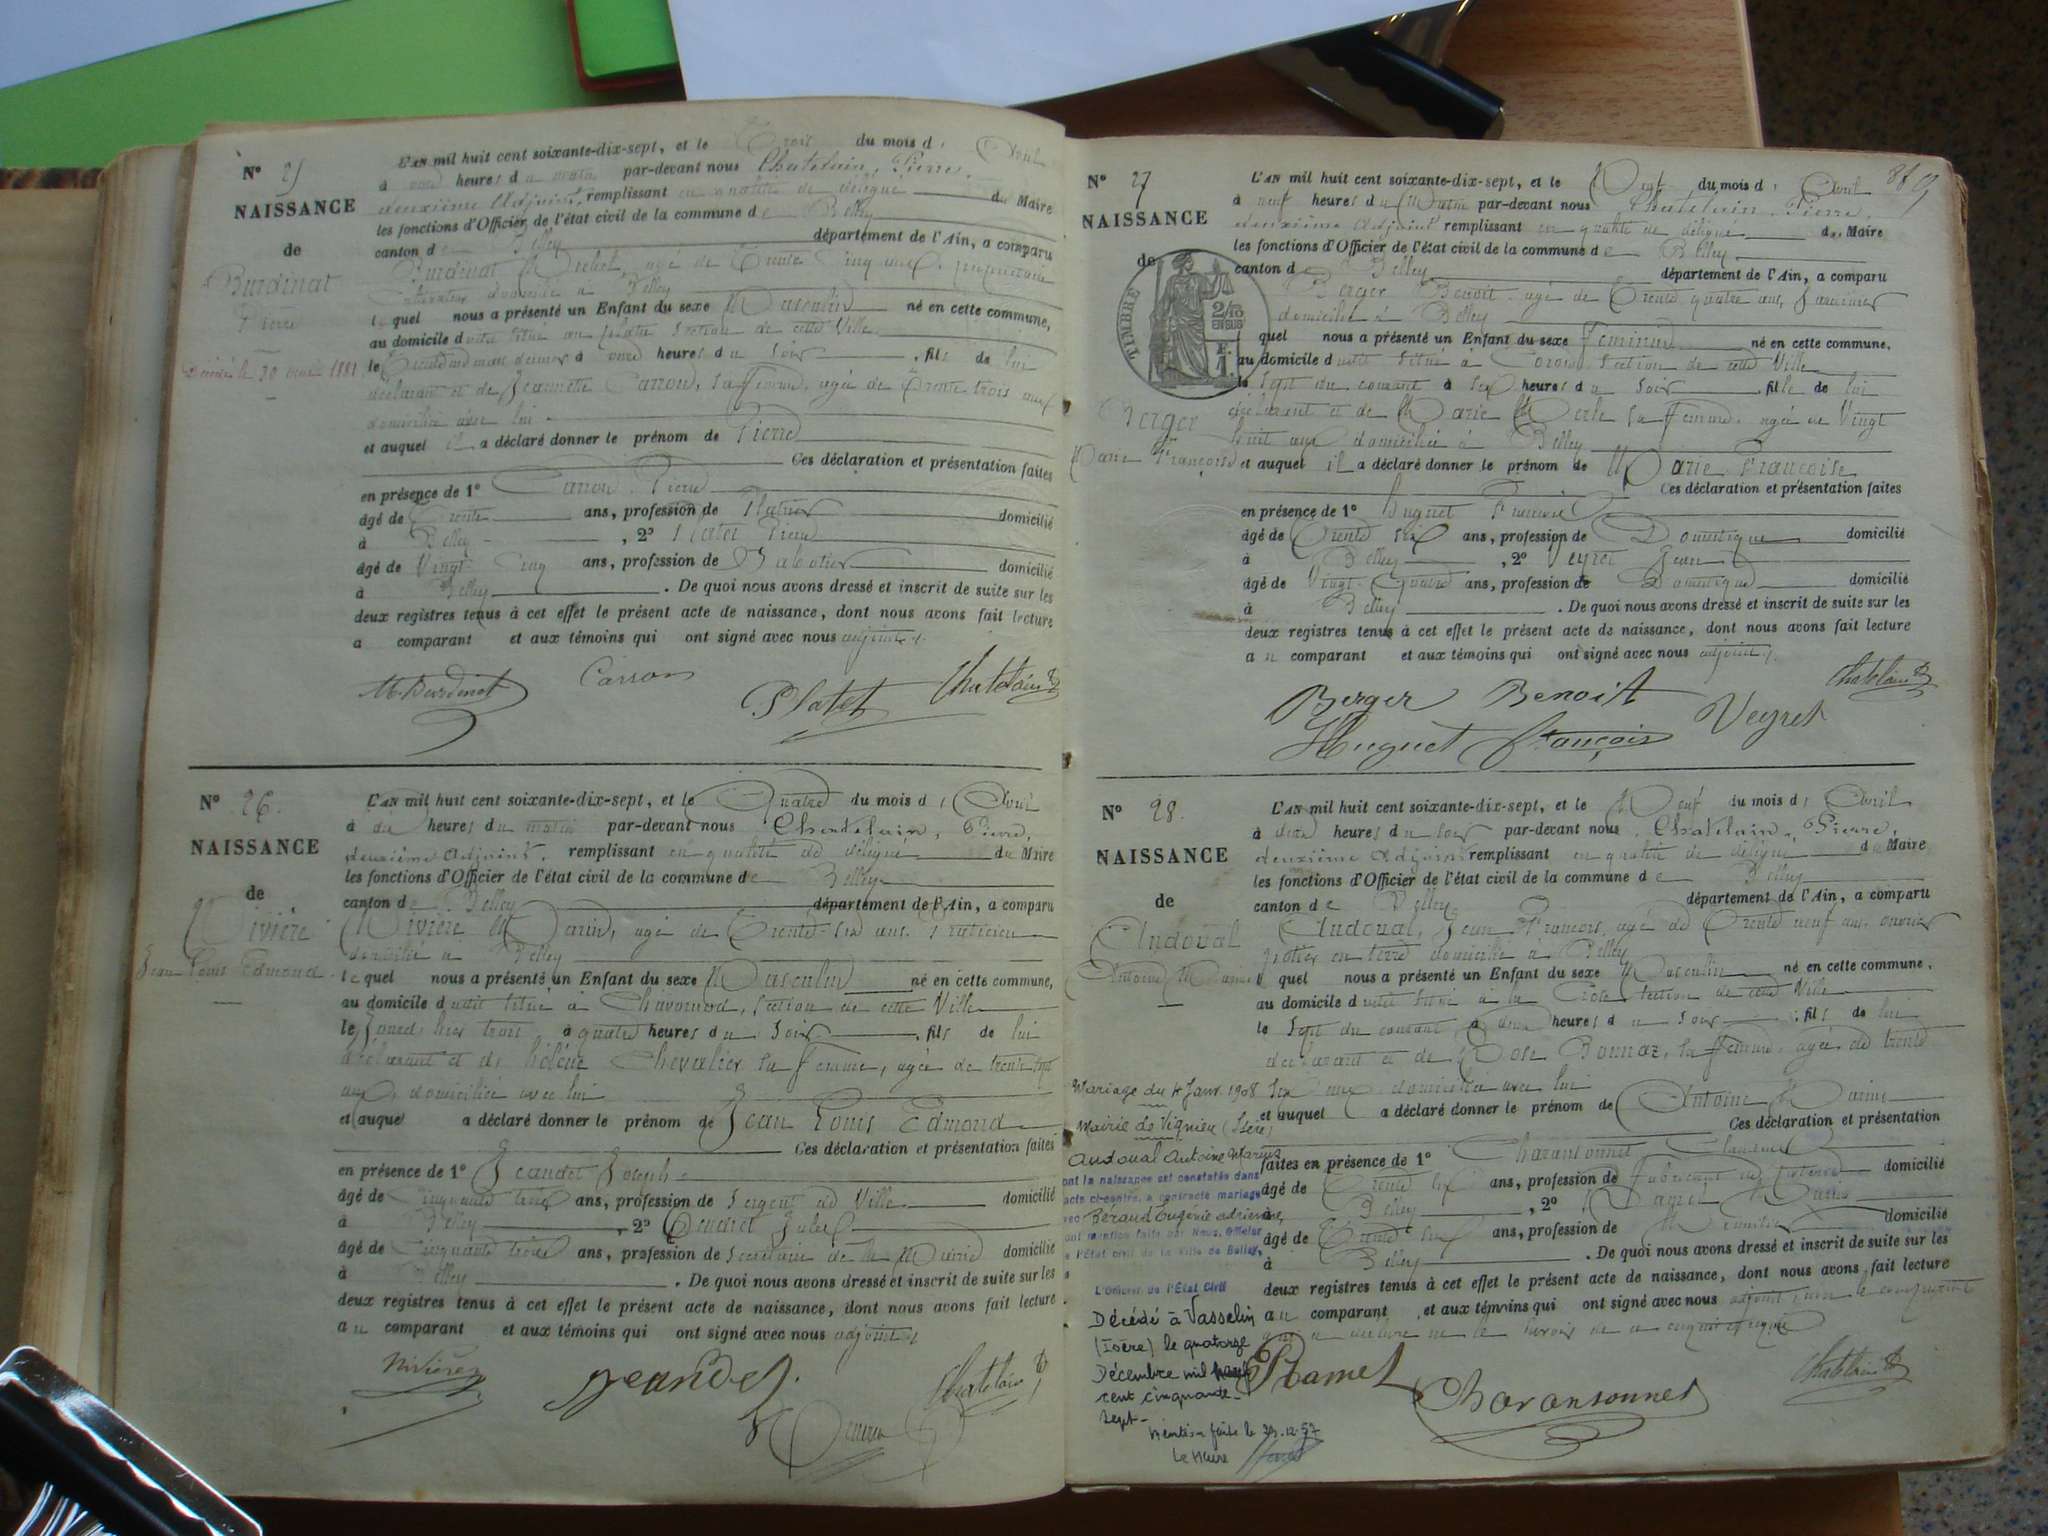 N° 25
NAISSANCE
de
Burdinat
Pierre
Décédé le 30 mai 1881
L'AN mil huit cent soixante-dix-sept, et le Trois du mois d' Avril
à onze heures du matin par-devant nous Chatelain, Pierre,
deuxième Adjoint, remplissant en qualité de délégué du Maire
les fonctions d'Officier de l'état civil de la commune de Belley
canton de Belley département de l'Ain, a comparu
Burdinat Michel, agé de Trente Cinq ans, propriétaire
cultivateur domicilié à Belley
lequel nous a présenté un Enfant du sexe Masculin né en cette commune,
au domicile section de cette Ville
le Trente un mars dernier à onze heures du soir, fils de lui
déclarant et de Jeannette Carron, sa femme, agée de Trente trois ans
domiciliée avec lui
et auquel il a déclaré donner le prénom de Pierre
Ces déclaration et présentation faites
en présence de 1° Carron Pierre
âgé de Trente ans, profession de Platrier domicilié
à Belley, 2° Platet Pierre
âgé de Vingt Cinq ans, profession de Sabotier domicilié
à Belley. De quoi nous avons dressé et inscrit de suite sur les
deux registres tenus à cet effet le présent acte de naissance, dont nous avons fait lecture
a comparant et aux témoins qui ont signé avec nous adjoint
M. Burdinat Carron Platet Chatelain
N° 26.
NAISSANCE
de
Rivière
Jean Louis Edmond
L'AN mil huit cent soixante-dix-sept, et le Quatre du mois d' Avril
à dix heures du matin par-devant nous Chatelain, Pierre,
deuxième Adjoint, remplissant en qualité de délégué du Maire
les fonctions d'Officier de l'état civil de la commune de Belley
canton de Belley département de l'Ain, a comparu
Rivière Marin, agé de Trente six ans, Praticien
domicilié à Belley
lequel nous a présenté un Enfant du sexe Masculin né en cette commune,
au domicile dudit situé à Chavonod, section de cette Ville
le hier trois, à quatre heures du soir, fils de lui
déclarant et de Hélène Chevalier sa femme, agée de trente sept
ans, domiciliée avec lui
et auquel a déclaré donner le prénom de Jean Louis Edmond
Ces déclaration et présentation faites
en présence de 1° Jeandet Joseph
âgé de cinquante trois ans, profession de Sergent de Ville domicilié
à Belley, 2° Jules
âgé de Cinquante trois ans, profession de Secrétaire de la Mairie domicilié
à Belley. De quoi nous avons dressé et inscrit de suite sur les
deux registres tenus à cet effet le présent acte de naissance, dont nous avons fait lecture
au comparant et aux témoins qui ont signé avec nous adjoint
Rivière Jeandet Chatelain
N° 27
NAISSANCE
de
TIMBRE
2/10
EN SUS
Berger
Marie Françoise
L'AN mil huit cent soixante-dix-sept, et le Neuf du mois d' Avril
à neuf heures du Matin par-devant nous Chatelain Pierre,
deuxième Adjoint remplissant en qualité de délégué du Maire
les fonctions d'Officier de l'état civil de la commune de Belley
canton de Belley département de l'Ain, a comparu
Berger Benoit agé de Trente quatre ans, Jardinier
domicilié à Belley
quel nous a présenté un Enfant du sexe Féminin né en cette commune,
au domicile dudit situé à Coron section de cette Ville
le Sept du courant à six heures du soir, fille de lui
déclarant et de Marie Merle sa femme, agée de Vingt
huit ans domiciliée à Belley
et auquel il a déclaré donner le prénom de Marie Françoise
Ces déclaration et présentation faites
en présence de 1° Huguet François
âgé de Trente six ans, profession de Domestique domicilié
à Belley, 2° Veyret Jean
âgé de Vingt Quatre ans, profession de Domestique domicilié
à Belley. De quoi nous avons dressé et inscrit de suite sur les
deux registres tenus à cet effet le présent acte de naissance, dont nous avons fait lecture
au comparant et aux témoins qui ont signé avec nous adjoint
Berger Benoit Veyret Chatelain
Huguet françois
N° 28.
NAISSANCE
de
Andoual
Antoine Marius
L'AN mil huit cent soixante-dix-sept, et le Neuf du mois d' Avril
à deux heures du soir par-devant nous Chatelain, Pierre,
deuxième Adjoint remplissant en qualité de délégué du Maire
les fonctions d'Officier de l'état civil de la commune de Belley
canton de Belley département de l'Ain, a comparu
Andoual, Jean François, agé de Trente neuf ans, ouvrier
potier en terre domicilié à Belley
quel nous a présenté un Enfant du sexe Masculin né en cette commune,
au domicile dudit situé à la section de cette Ville
le Sept du courant à deux heures du soir, fils de lui
déclarant et de Rose Bonnaz, sa femme, agée de trente
six ans domiciliée avec lui
et auquel a déclaré donner le prénom de Antoine Marius
Ces déclaration et présentation
faites en présence de 1° Charansonnet Claudius
âgé de Trente six ans, profession de Fabricant de Poterie domicilié
à Belley, 2° Ramel Marius
âgé de Trente six ans, profession de Menuisier domicilié
à Belley. De quoi nous avons dressé et inscrit de suite sur les
deux registres tenus à cet effet le présent acte de naissance, dont nous avons fait lecture
au comparant, et aux témoins qui ont signé avec nous adjoint, non le comparant
qui a déclaré ne le savoir de ce enquis et requis
Ramel Charansonnet Chatelain
Mariage du 4 Janv. 1908
Mairie de Vignieu (Isère)
Andoual Antoine Marius
ont la naissance est constatée dans
acte ci-contre, a contracté mariage
Béraud Eugénie Adrienne
ont mention faite par Nous, Officier
l'Etat civil de la Ville de Belley,
L'Officier de l'État Civil
Décédé à Vasselin
(Isère) le quatorze
Décembre mil neuf
cent cinquante
sept-
Mention faite le 12.57
Le Maire